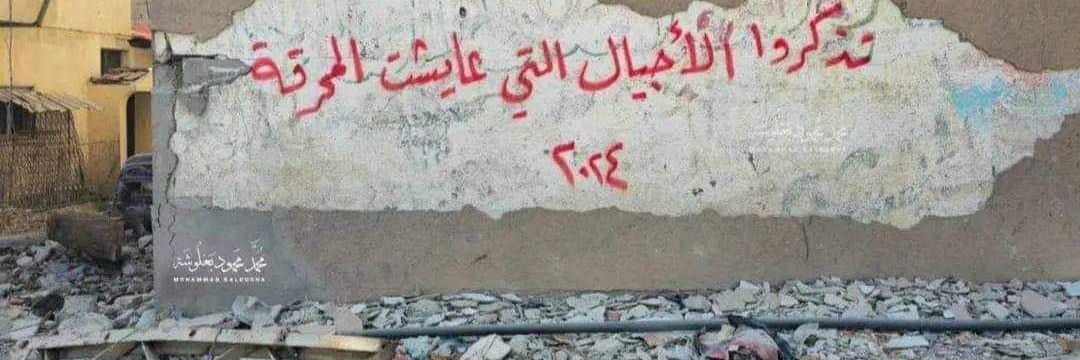 تذكروا الأجيال التي عايشت المحرقة
٢٠٢٤
محمد محمود بعلوشة
محمد محمود بعلوشة
MOHAMMAD BALOUSHA